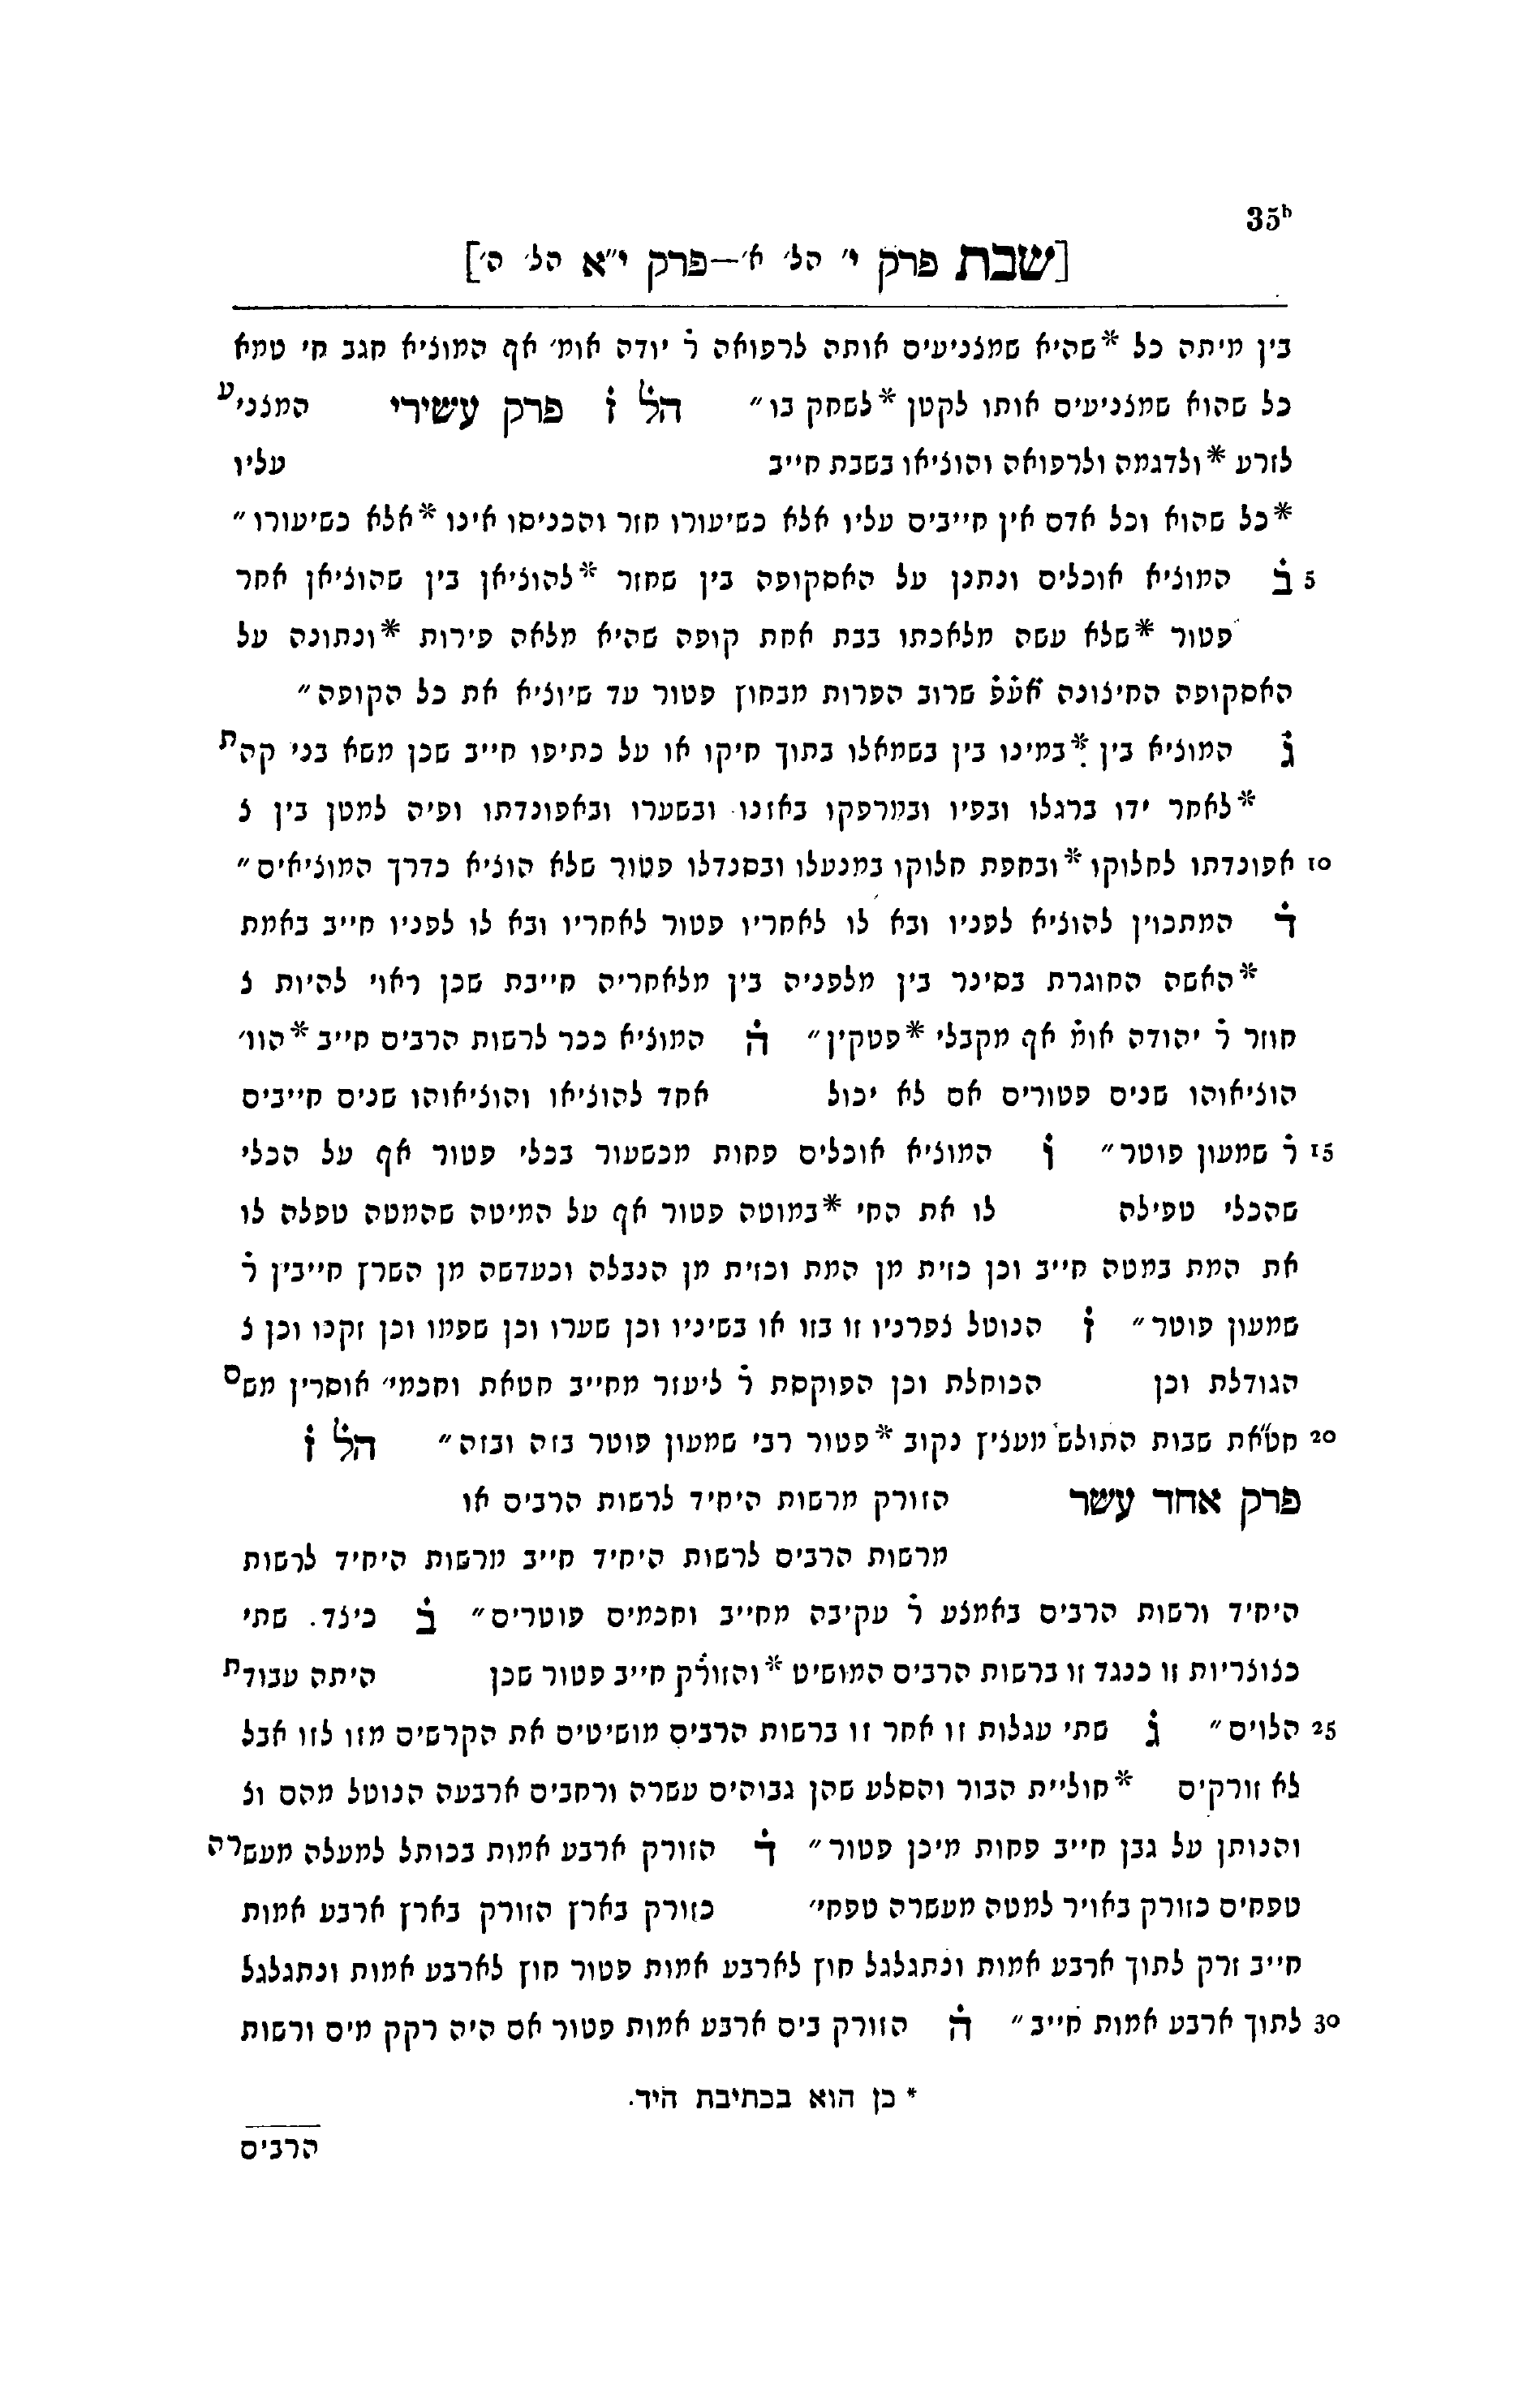 35b
[שבת פרק י׳ הל׳ א׳—פרק י״א הל׳ ה׳]
בין מיתה כל *שהיא שמצניעים אותה לרפואה ר̇ יודה אומ׳ אף המוציא חגב חי טמא
כל שהוא שמצניעים אותו לקטן *לשחק בו״ הל̇ ז̇ פרק עשירי המצניע
לזרע *ולדגמה ולרפואה והוציאו בשבת חייב עליו
*כל שהוא וכל אדם אין חייבים עליו אלא כשיעורו חזר והכניסו אינו *אלא כשיעורו״
5 ב̇ המוציא אוכלים ונתנן על האסקופה בין שחזר *להוציאן בין שהוציאן אחר
פטור *שלא עשה מלאכתו בבת אחת קופה שהיא מלאה פירות *ונתונה על
האסקופה החיצונה אע̇פ̇ שרוב הפרות מבחוץ פטור עד שיוציא את כל הקופה״
ג̇ המוציא בין *במינו בין בשמאלו בתוך חיקו או על כתיפו חייב שכן משא בני קהת
*לאחר ידו ברגלו ובפיו ובמרפקו באזנו ובשערו ובאפונדתו ופיה למטן בין צ
10 אפונדתו לחלוקו *ובחפת חלוקו במנעלו ובסנדלו פטור שלא הוציא כדרך המוציאים״
ד̇ המתכוין להוציא לפניו ובא לו לאחריו פטור לאחריו ובא לו לפניו חייב באמת
*האשה החוגרת בסינר בין מלפניה בין מלאחריה חייבת שכן ראוי להיות צ
חוזר ר̇ יהודה אומ̇ אף מקבלי *פטקין״ ה̇ המוציא ככר לרשות הרבים חייב *הוו׳
הוציאוהו שנים פטורים אם לא יכול אחד להוציאו והוציאוהו שנים חייבים
15 ר̇ שמעון פוטר״ ו̇ המוציא אוכלים פחות מכשעור בכלי פטור אף על הכלי
שהכלי טפילה לו את החי *במוטה פטור אף על המיטה שהמטה טפלה לו
את המת במטה חייב וכן כזית מן המת וכזית מן הנבלה וכעדשה מן השרץ חייבין ר̇
שמעון פוטר״ ז̇ הנוטל צפרניו זו בזו או בשיניו וכן שערו וכן שפמו וכן זקנו וכן צ
הגודלת וכן הכוחלת וכן הפוקסת ר̇ ליעזר מחייב חטאת וחכמי׳ אוסרין משם
20 חטאת שבות התולש מעציץ נקוב *פטור רבי שמעון פוטר בזה ובזה״ הל̇ ז̇
פרק אחד עשר הזורק מרשות היחיד לרשות הרבים או
מרשות הרבים לרשות היחיד חייב מרשות היחיד לרשות
היחיד ורשות הרבים באמצע ר̇ עקיבה מחייב וחכמים פוטרים״ ב̇ כיצד. שתי
כצוצריות זו כנגד זו ברשות הרבים המושיט *והזורק חייב פטור שכן היתה עבודת
25 הלוים״ ג̇ שתי עגלות זו אחר זו ברשות הרבים מושיטים את הקרשים מזו לזו אבל
לא זורקים *חוליית הבור והסלע שהן גבוהים עשרה ורחבים ארבעה הנוטל מהם וצ
והנותן על גבן חייב פחות מיכן פטור״ ד̇ הזורק ארבע אמות בכותל למעלה מעשרה
טפחים כזורק באויר למטה מעשרה טפחי׳ כזורק בארץ הזורק בארץ ארבע אמות
חייב זרק לתוך ארבע אמות ונתגלגל חוץ לארבע אמות פטור חוץ לארבע אמות ונתגלגל
30 לתוך ארבע אמות חייב״ ה̇ הזורק בים ארבע אמות פטור אם היה רקק מים ורשות
* כן הוא בכתיבת היד.
הרבים